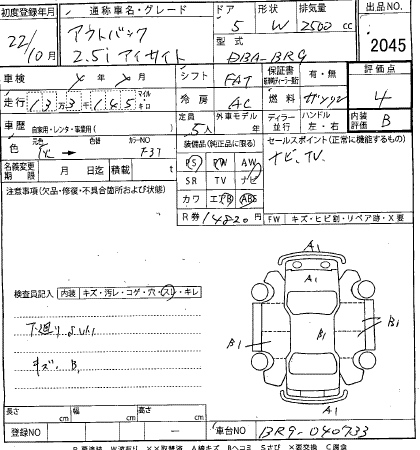 初度登録年月 通称車名・グレード ドア 形状 排気量 出品NO
22/10月 アウトバック 5 W 2500cc 2045
2.5i アイサイト 型式
DBA-BR9
車検 年 月 シフト FAT 保証書 有・無 評価点
走行 13万3千145 マイル キロ 冷房 AC 燃料 ガソリン 4
車歴 自家用・レンタ・事業用( ) 定員 5人 外車モデル 年 ディーラー 並行 ハンドル 左・右 内装評価 B
色 元色 色替 カラーNO 装備品(純正品に限る) セールスポイント(正常に機能するもの)
F37 PS PW AW ナビ、TV、
名義変更期限 月 日迄 積載 t SR TV ナビ
注意事項(欠品・修復・不具合箇所および状態) カワ エアB ABS
R券 14820円 FW キズ・ヒビ割・リペア跡・X要
A1
A1
検査員記入 内装 キズ・汚レ・コゲ・穴・スレ・キレ
B1 B1 B1
下廻りよい
キズ、B1
A1
長さ cm 幅 cm 高さ cm
登録NO 車台NO BR9-040733